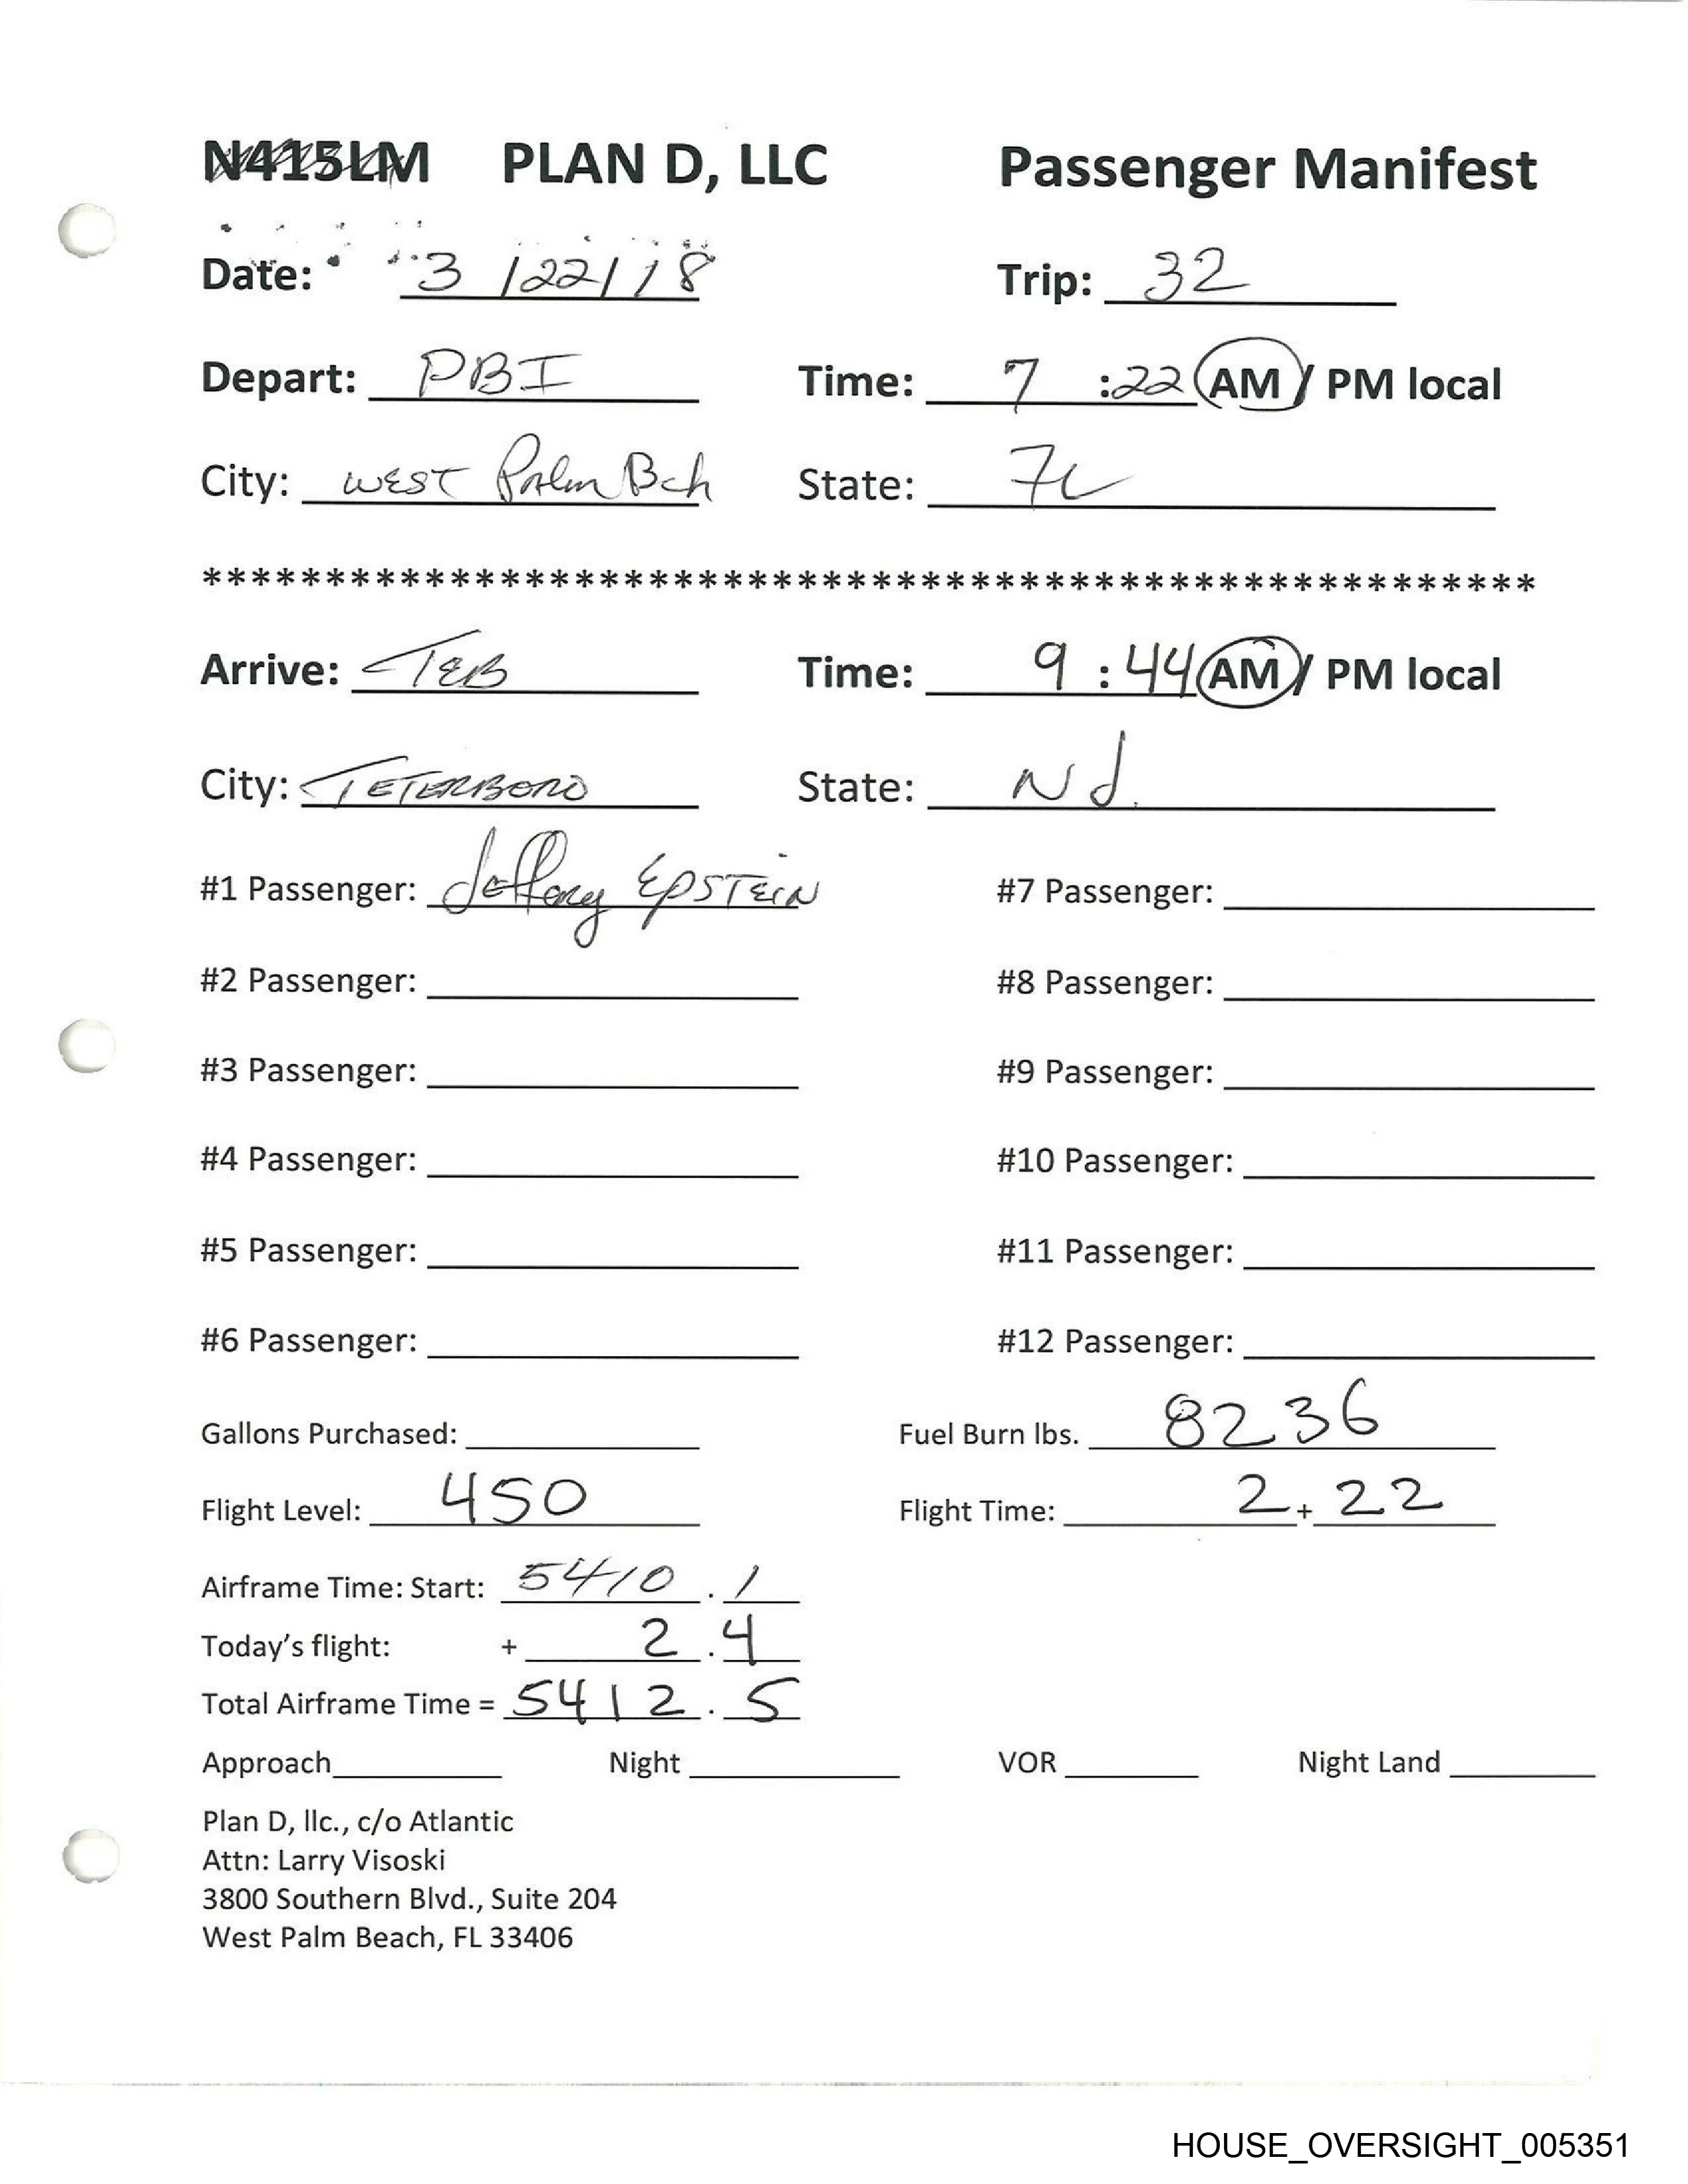 N415LM PLAN D, LLC Passenger Manifest
Date: 3 /22/18 Trip: 32
Depart: PBI Time: 7 :22 AM / PM local
City: WEST Palm Bch State: FL
******************************************************
Arrive: TEB Time: 9 : 44 AM / PM local
City: TETERBORO State: NJ.
#1 Passenger: Jeffrey EPSTEIN #7 Passenger:
#2 Passenger: #8 Passenger:
#3 Passenger: #9 Passenger:
#4 Passenger: #10 Passenger:
#5 Passenger: #11 Passenger:
#6 Passenger: #12 Passenger:
Gallons Purchased: Fuel Burn lbs. 8236
Flight Level: 450 Flight Time: 2 + 22
Airframe Time: Start: 5410 . 1
Today's flight: + 2 . 4
Total Airframe Time = 5412 . 5
Approach Night VOR Night Land
Plan D, llc., c/o Atlantic
Attn: Larry Visoski
3800 Southern Blvd., Suite 204
West Palm Beach, FL 33406
HOUSE_OVERSIGHT_005351